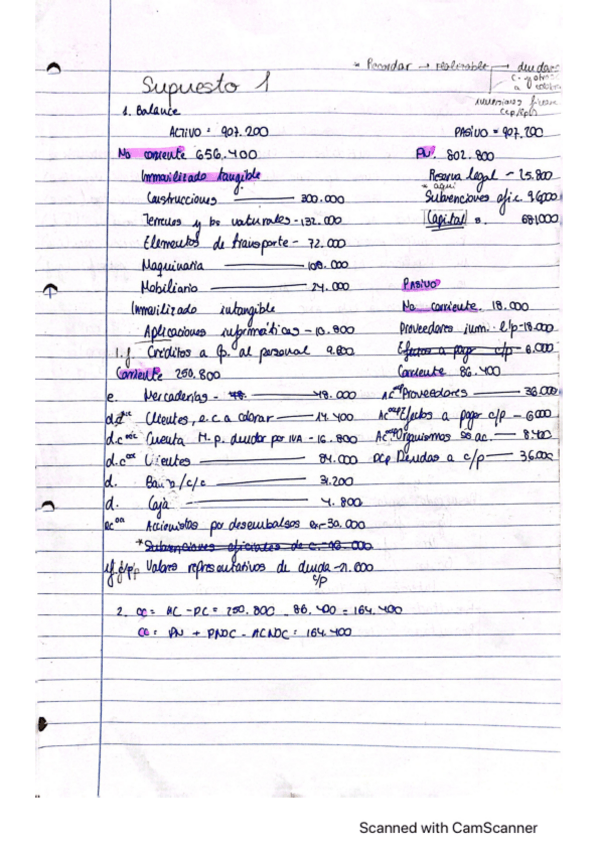 * Recordar → realizable → deudores
c. y otros
a cobrar
inversiones financ
(cp/lp)
Supuesto 1
1. Balance
ACTIVO = 907.200 PASIVO = 907.200
No corriente 656.400 PN: 802.800
Inmovilizado tangible Reserva legal - 25.800
* aquí
Construcciones 300.000 Subvenciones ofic. 96000
Terrenos y b. naturales - 132.000 Capital s. 681000
Elementos de transporte - 72.000
Maquinaria 108.000 PASIVO
Mobiliario 24.000 No corriente. 18.000
Inmovilizado intangible
Aplicaciones informáticas - 10.800 Proveedores inm. l/p - 18.000
1.f Créditos a lp. al personal 9.600 Efectos a pagar c/p - 6.000
Corriente 250.800 Corriente 86.400
e. Mercaderías - 48.000 Proveedores 36.000
Clientes, e.c. a cobrar 14.400 Efectos a pagar c/p - 6000
Cuenta H.p. deudor por IVA - 16.800 Organismos ss ac. 8.400
Clientes 84.000 Deudas a c/p - 36.000
d. Banco/c/c 31.200
d. Caja 4.800
Accionistas por desembolsos ex - 30.000
* Subvenciones oficiales de c. - 96.000
Valores representativos de deuda - 21.600
c/p
2. CC = AC - PC = 250.800 - 86.400 = 164.400
CC = PN + PNOC - ACNOC = 164.400
Scanned with CamScanner